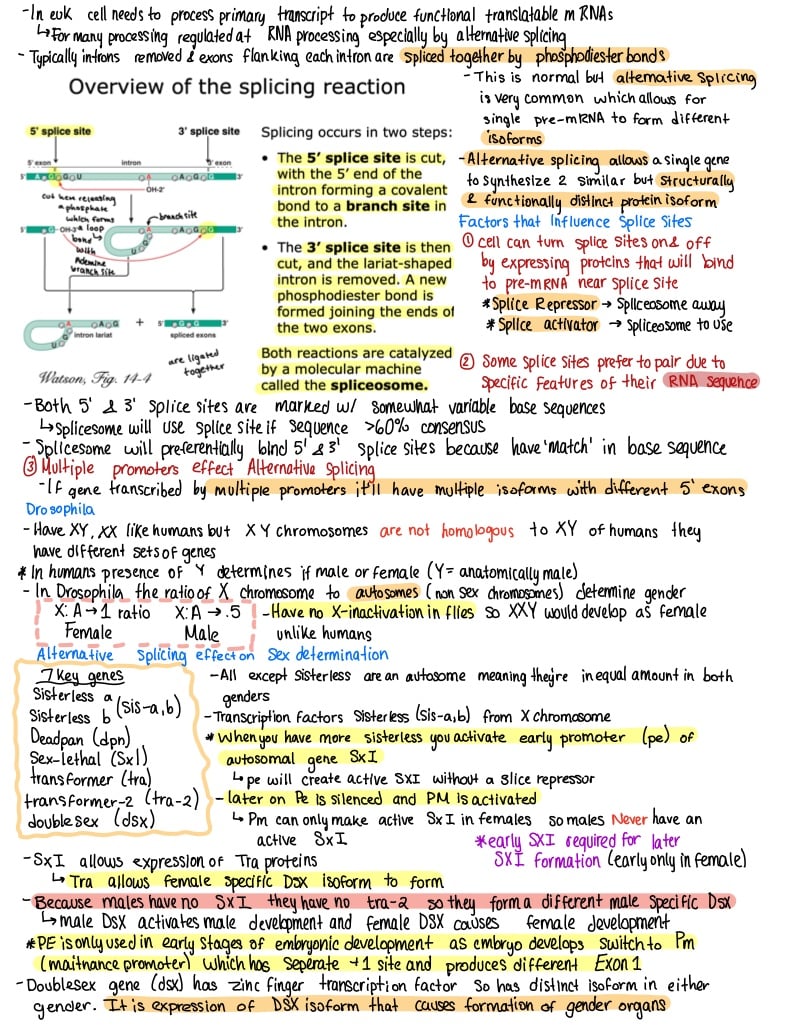 -In euk cell needs to process primary transcript to produce functional translatable mRNAs
↳For many processing regulated at RNA processing especially by alternative splicing
- Typically introns removed & exons flanking each intron are spliced together by phosphodiester bonds
Overview of the splicing reaction
5' splice site
3' splice site
5' exon
intron
3' exon
5'
AGGU
A
OH-2'
CAGG
3'
cut here releasing
a phosphate
which forms
a loop
bond
with
Adenine
branch site
branch site
5'
OH-3'
CAGG
3'
intron lariat
+
5'
3'
spliced exons
are ligated
together
Watson, Fig. 14-4
Splicing occurs in two steps:
• The 5' splice site is cut,
with the 5' end of the
intron forming a covalent
bond to a branch site in
the intron.
• The 3' splice site is then
cut, and the lariat-shaped
intron is removed. A new
phosphodiester bond is
formed joining the ends of
the two exons.
Both reactions are catalyzed
by a molecular machine
called the spliceosome.
- This is normal but alternative splicing
is very common which allows for
single pre-mRNA to form different
isoforms
-Alternative splicing allows a single gene
to synthesize 2 similar but structurally
& functionally distinct protein isoform
Factors that Influence Splice Sites
① cell can turn splice sites on & off
by expressing proteins that will bind
to pre-mRNA near splice site
*Splice Repressor → Spliceosome away
*Splice activator → spliceosome to use
② Some splice sites prefer to pair due to
specific features of their RNA sequence
-Both 5' & 3' splice sites are marked w/ somewhat variable base sequences
↳Splicesome will use splice site if sequence >60% consensus
- Splicesome will preferentially bind 5' & 3' splice sites because have 'match' in base sequence
③ Multiple promoters effect Alternative Splicing
-If gene transcribed by multiple promoters it'll have multiple isoforms with different 5' exons
Drosophila
- Have XY, XX like humans but XY chromosomes are not homologous to XY of humans they
have different sets of genes
* In humans presence of Y determines if male or female (Y= anatomically male)
- In Drosophila the ratio of X chromosome to autosomes (non sex chromosomes) determine gender
X: A → 1 ratio X:A → .5
Female Male
-Have no X-inactivation in flies so XXY would develop as female
unlike humans
Alternative Splicing effect on Sex determination
7 Key genes
Sisterless a
Sisterless b (sis-a,b)
Deadpan (dpn)
Sex-lethal (Sxl)
transformer (tra)
transformer-2 (tra-2)
doublesex (dsx)
-All except sisterless are an autosome meaning they're in equal amount in both
genders
-Transcription factors Sisterless (sis-a,b) from X chromosome
* when you have more sisterless you activate early promoter (pe) of
autosomal gene SxI
↳ pe will create active SXI without a slice repressor
- later on Pe is silenced and PM is activated
↳ Pm can only make active SxI in females so males Never have an
active SxI
*early SXI required for later
SXI formation (early only in female)
-SxI allows expression of Tra proteins
↳ Tra allows female specific Dsx isoform to form
- Because males have no SxI they have no tra-2 so they form a different male specific Dsx
↳male DSX activates male development and female DSX causes female development
*PE is only used in early stages of embryonic development as embryo develops switch to Pm
(maitnance promoter) which has seperate +1 site and produces different Exon 1
-Doublesex gene (dsx) has zinc finger transcription factor so has distinct isoform in either
gender. It is expression of DSX isoform that causes formation of gender organs